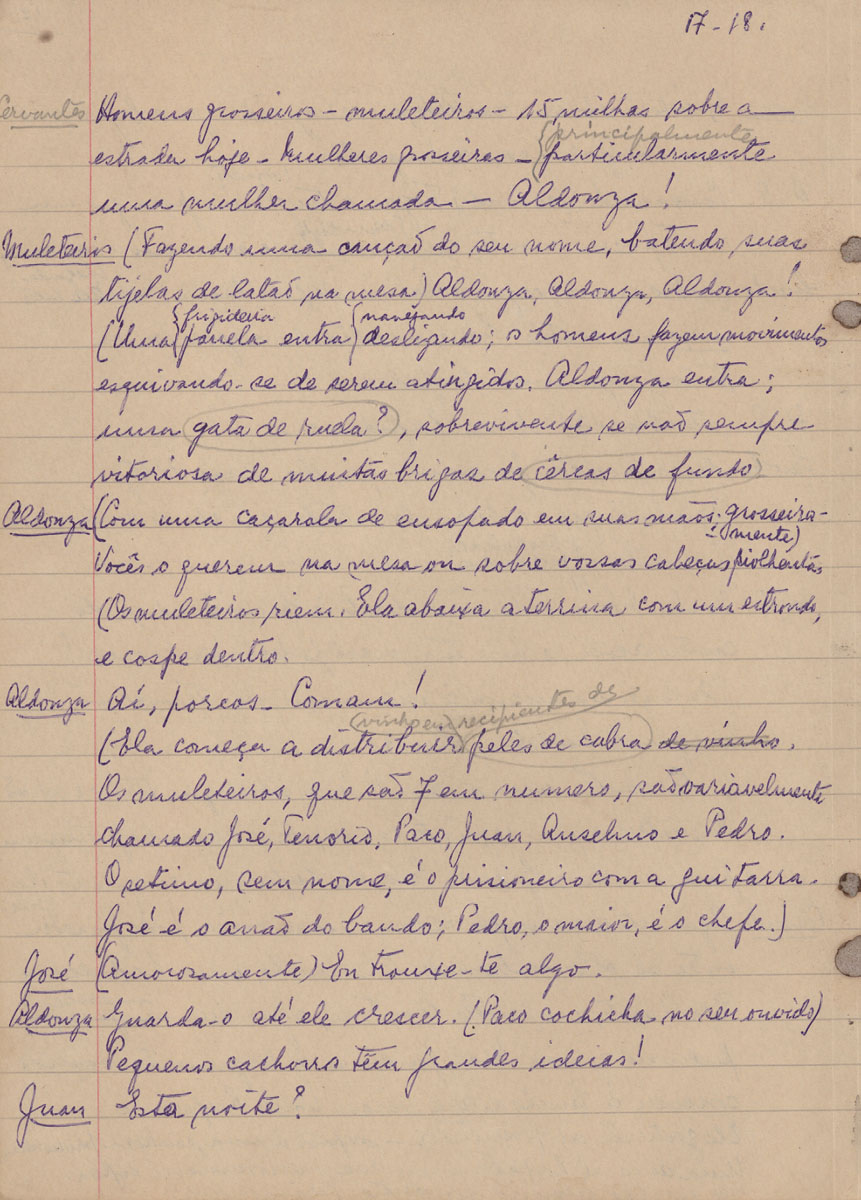 17-18.
Cervantes Homens grosseiros - muleteiros - 15 milhas sobre a
principalmente
estrada hoje - Mulheres grosseiras - particularmente
uma mulher chamada - Aldonza!
Muleteiros (Fazendo uma canção do seu nome, batendo suas
tijelas de latão na mesa) Aldonza, Aldonza, Aldonza!
frigideira navegando
(Uma panela entra deslizando; os homens fazem movimentos
esquivando-se de serem atingidos. Aldonza entra;
uma gata de ruela?, sobrevivente se não sempre
vitoriosa de muitas brigas de cêrcas de fundo
Aldonza (Com uma caçarola de ensopado em suas mãos; grosseira-
mente)
Vocês o querem na mesa ou sobre vossas cabeças piolhentas
(Os muleteiros riem. Ela abaixa a terrina com um estrondo,
e cospe dentro.
Aldonza Aí, porcos - Comam!
vinho em recipientes de
(Ela começa a distribuir peles de cabra de vinho.
Os muleteiros, que são 7 em numero, são variavelmente
chamado José, Tenorio, Paco, Juan, Anselmo e Pedro.
O setimo, sem nome, é o prisioneiro com a guitarra.
José é o anão do bando; Pedro, o maior, é o chefe.)
José (Amorosamente) Eu trouxe-te algo.
Aldonza Guarda-o até ele crescer. (Paco cochicha no seu ouvido)
Pequenos cachorros têm grandes ideias!
Juan Esta noite?